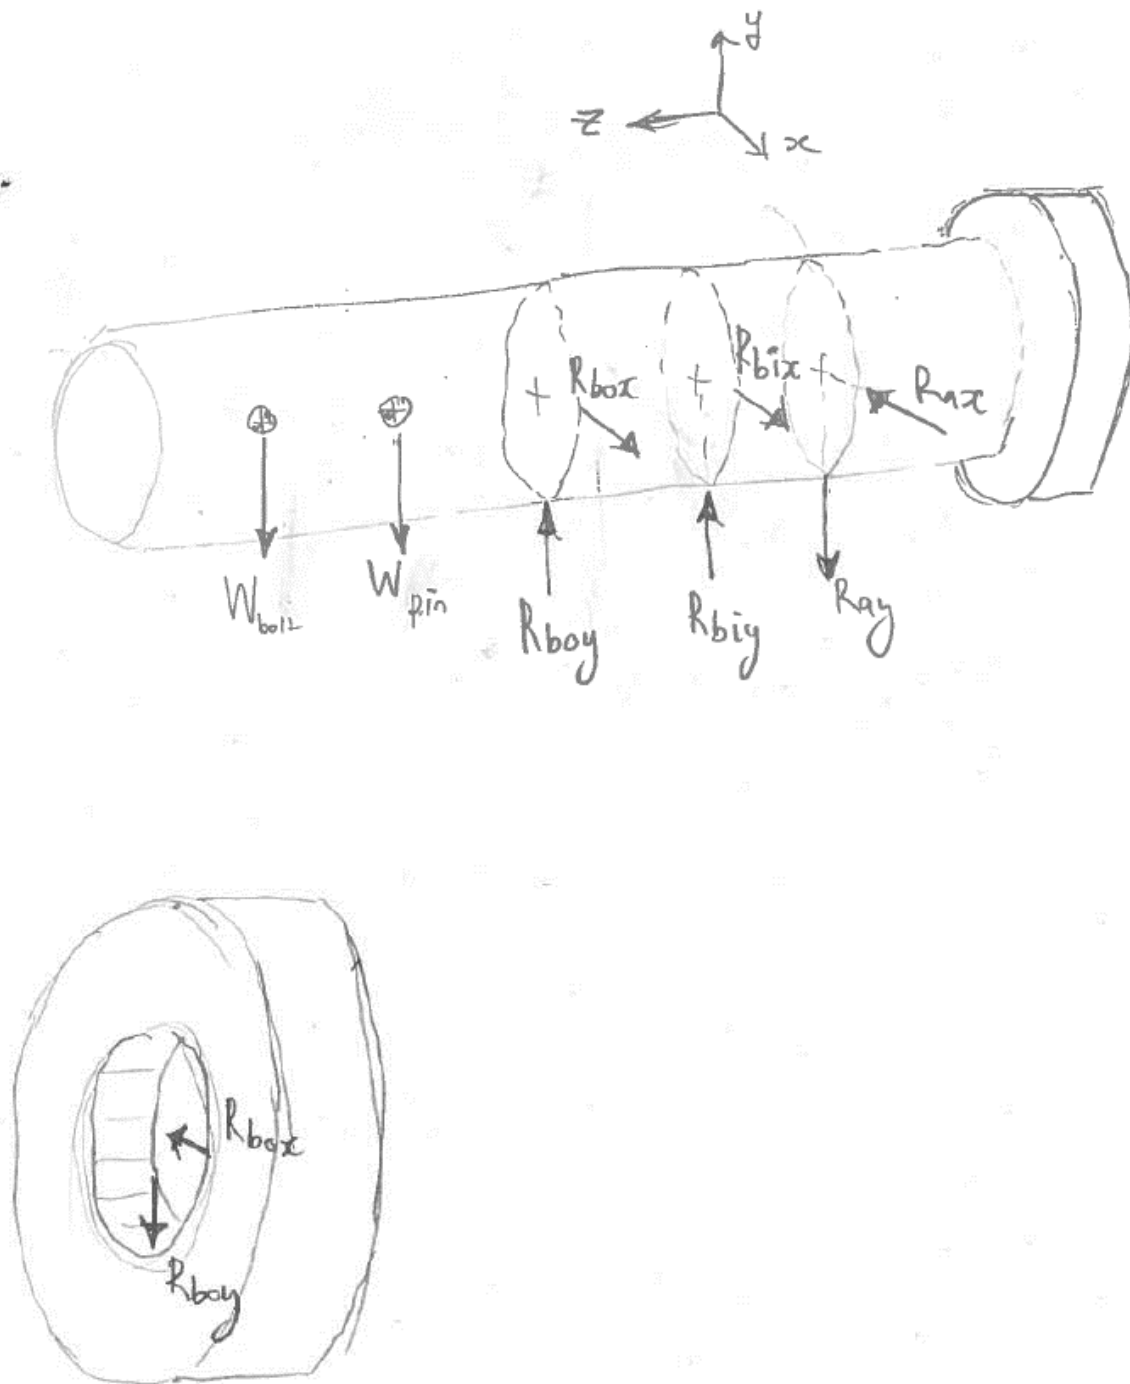 y
z
x
Rbox
Rbix
Rax
Wbolt
Wpin
Rboy
Rbiy
Ray
Rbox
Rboy